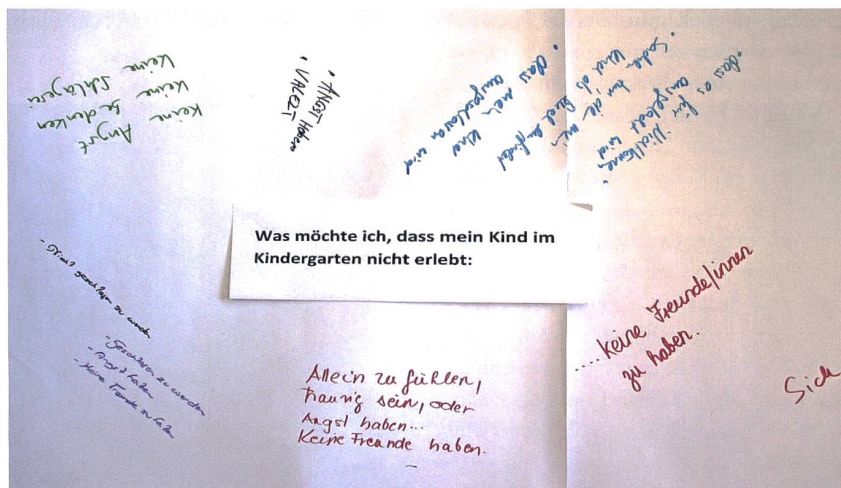 keine Angst
keine Bedenken
keine Schlägerei
• ANGST Haben
• VALEZT
• dass mein Kind
ausgeschlossen wird
• Sachen tun die mein
Kind als
• dass es für
ausgelacht wird
Was möchte ich, dass mein Kind im
Kindergarten nicht erlebt:
- Nicht geschlagen zu werden
- Geschlagen zu werden
- Angst haben
- Keine Freunde zu haben
Allein zu fühlen,
traurig sein, oder
Angst haben...
Keine Freunde haben.
....keine Freunde/innen
zu haben.
Sich